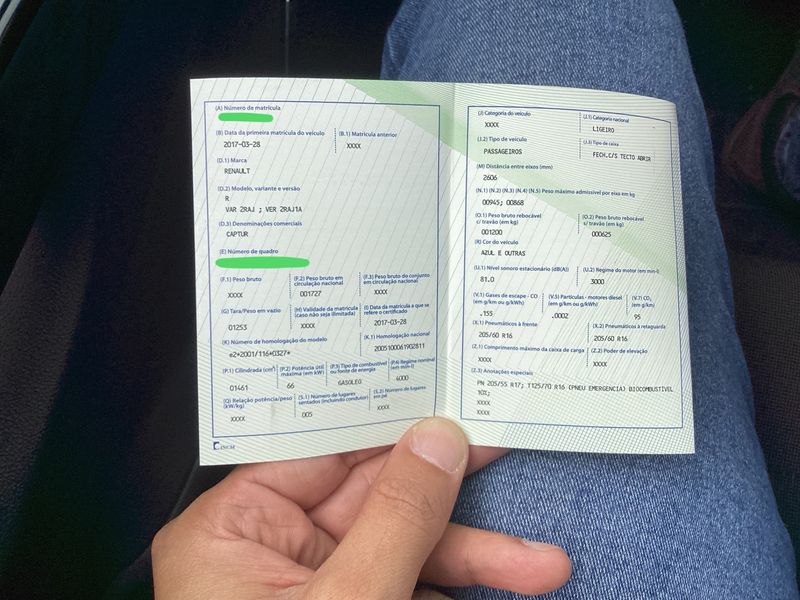 (A) Número de matrícula
(B) Data da primeira matrícula do veículo
2017-03-28
(B.1) Matrícula anterior
XXXX
(D.1) Marca
RENAULT
(D.2) Modelo, variante e versão
R
VAR 2RAJ ; VER 2RAJ1A
(D.3) Denominações comerciais
CAPTUR
(E) Número de quadro
(F.1) Peso bruto
XXXX
(F.2) Peso bruto em
circulação nacional
001727
(F.3) Peso bruto do conjunto
em circulação nacional
XXXX
(G) Tara/Peso em vazio
01253
(H) Validade da matrícula
(caso não seja ilimitada)
XXXX
(I) Data da matrícula a que se
refere o certificado
2017-03-28
(K) Número de homologação do modelo
e2*2001/116*0327*
(K.1) Homologação nacional
2005100061902811
(P.1) Cilindrada (cm³)
01461
(P.2) Potência útil
máxima (em kW)
66
(P.3) Tipo de combustível
ou fonte de energia
GASOLEO
(P.4) Regime nominal
(em min-1)
4000
(Q) Relação potência/peso
(kW/kg)
XXXX
(S.1) Número de lugares
sentados (incluindo condutor)
005
(S.2) Número de lugares
em pé
XXXX
INCM
(J) Categoria do veículo
XXXX
(J.1) Categoria nacional
LIGEIRO
(J.2) Tipo de veículo
PASSAGEIROS
(J.3) Tipo de caixa
FECH.C/S TECTO ABRIR
(M) Distância entre eixos (mm)
2606
(N.1) (N.2) (N.3) (N.4) (N.5) Peso máximo admissível por eixo em kg
00945; 00868
(O.1) Peso bruto rebocável
c/ travão (em kg)
001200
(O.2) Peso bruto rebocável
s/ travão (em kg)
000625
(R) Cor do veículo
AZUL E OUTRAS
(U.1) Nível sonoro estacionário (dB(A))
81.0
(U.2) Regime do motor (em min-1)
3000
(V.1) Gases de escape - CO
(em g/km ou g/kWh)
.155
(V.5) Partículas - motores diesel
(em g/km ou g/kWh)
.0002
(V.7) CO₂
(em g/km)
95
(X.1) Pneumáticos à frente
205/60 R16
(X.2) Pneumáticos à retaguarda
205/60 R16
(Z.1) Comprimento máximo da caixa de carga
XXXX
(Z.2) Poder de elevação
XXXX
(Z.3) Anotações especiais
PN 205/55 R17; T125/70 R16 (PNEU EMERGENCIA) BIOCOMBUSTÍVEL
10%;
XXXX
XXXX